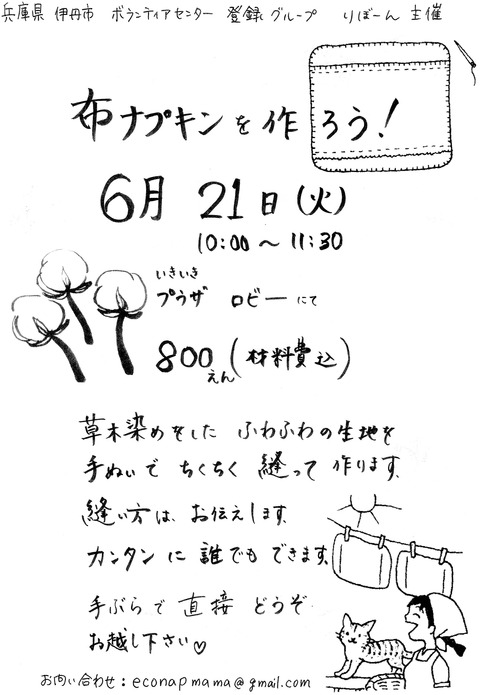 兵庫県 伊丹市 ボランティアセンター 登録グループ りぼーん 主催
布ナプキンを作ろう!
6月 21日(火)
10:00～11:30
いきいき
プラザ ロビーにて
800えん(材料費込)
草木染めをした ふわふわの生地を
手ぬいで ちくちく 縫って 作ります。
縫い方は、お伝えします。
カンタンに 誰でも できます。
手ぶらで 直接 どうぞ
お越し下さい♡
お問い合わせ:econapmama@gmail.com